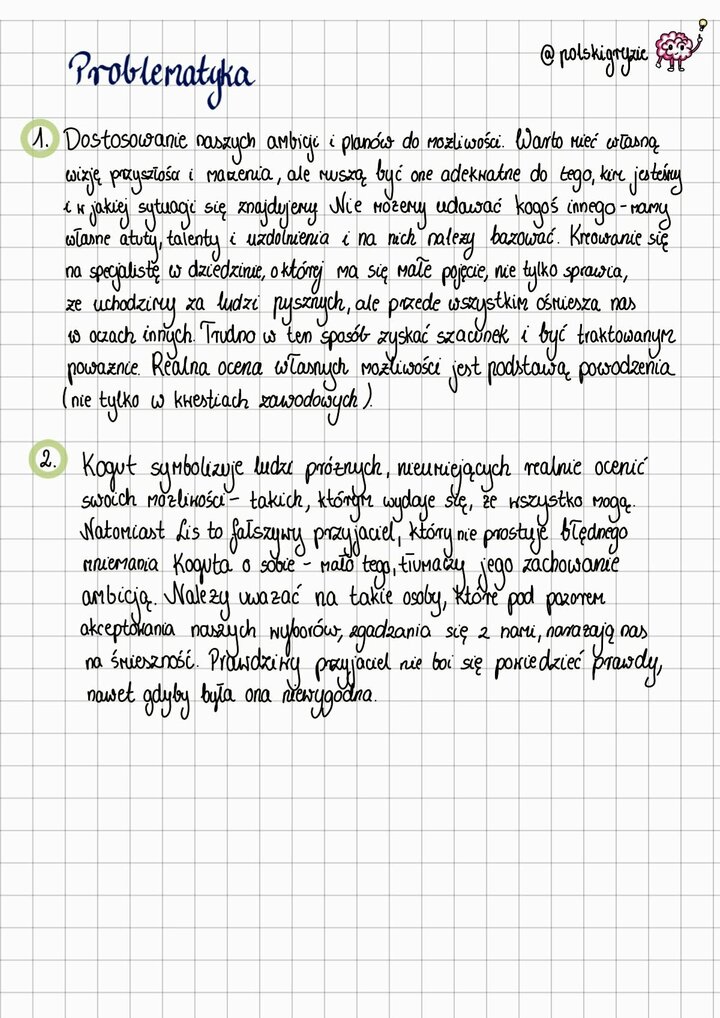 @polskigryzie
Problematyka
1. Dostosowanie naszych ambicji i planów do możliwości. Warto mieć własną
wizję przyszłości i marzenia, ale muszą być one adekwatne do tego, kim jesteśmy
i w jakiej sytuacji się znajdujemy. Nie możemy udawać kogoś innego - mamy
własne atuty, talenty i uzdolnienia i na nich należy bazować. Kreowanie się
na specjalistę w dziedzinie, o której ma się małe pojęcie, nie tylko sprawia,
że uchodzimy za ludzi pysznych, ale przede wszystkim ośmiesza nas
w oczach innych. Trudno w ten sposób zyskać szacunek i być traktowanym
poważnie. Realna ocena własnych możliwości jest podstawą powodzenia
(nie tylko w kwestiach zawodowych).
2. Kogut symbolizuje ludzi próżnych, nieumiejących realnie ocenić
swoich możliwości - takich, którym wydaje się, że wszystko mogą.
Natomiast Lis to fałszywy przyjaciel, który nie prostuje błędnego
mniemania Koguta o sobie - mało tego, tłumaczy jego zachowanie
ambicją. Należy uważać na takie osoby, które pod pozorem
akceptowania naszych wyborów, zgadzania się z nami, narażają nas
na śmieszność. Prawdziwy przyjaciel nie boi się powiedzieć prawdy,
nawet gdyby była ona niewygodna.